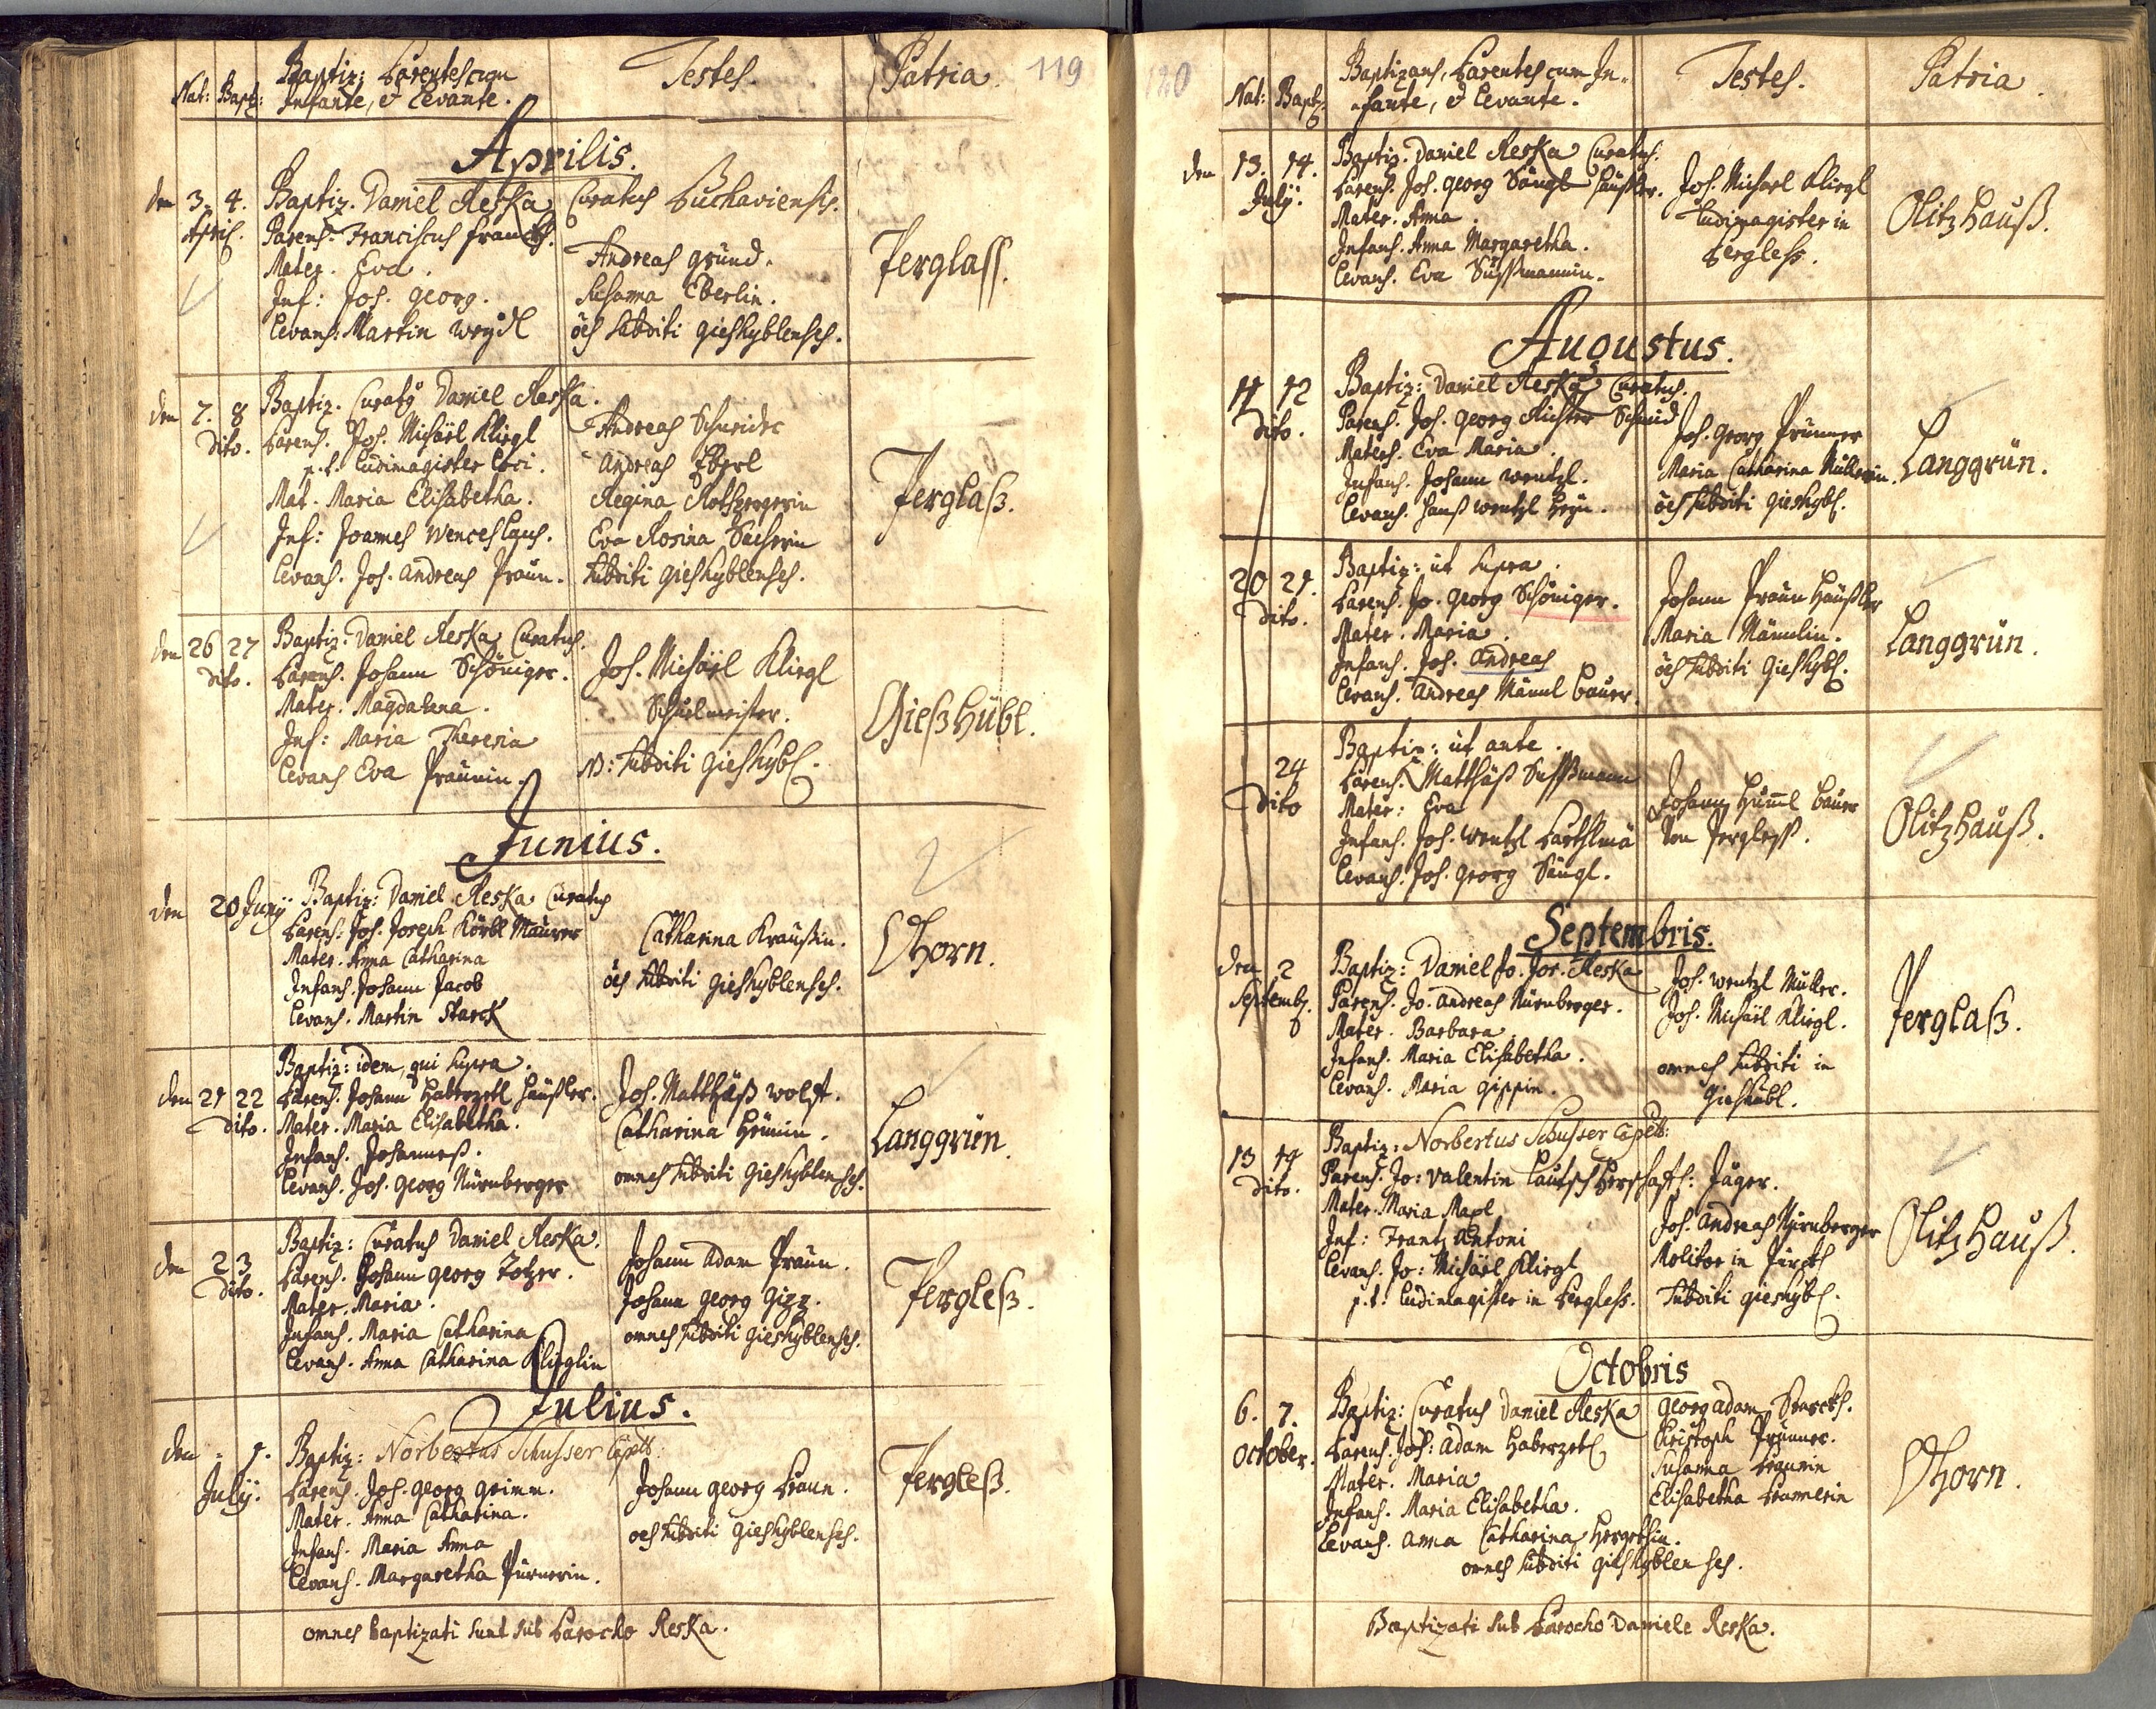 119
Nat: Bapt: Baptiz: Parentes cum Infante, & Levante. Testes. Patria.
Aprilis.
den 3. 4. April.
Baptiz. Daniel Reska Curatus Luchaviensis.
Parens. Franciscus Franck.
Mater. Eva.
Inf: Joh. Georg.
Levans: Martin Weydl
Andreas Gründ.
Susanna Eberlin.
ões subditi Gieshyblenses.
Perglass.
den 7. 8 dito.
Baptiz. Curatus Daniel Reska.
Parens. Joh. Michäel Kliegl
p.t. Ludimagister Loci.
Mat. Maria Elisabetha.
Inf: Joannes Wenceslaus.
Levans. Joh. Andreas Praun.
Andreas Schneider
Andreas Eberl
Regina
Eva Rosina
subditi Gieshyblenses.
Perglaß.
den 26 27 dito.
Baptiz. Daniel Reska Curatus.
Parens. Johann Schöniger.
Mater. Magdalena.
Inf: Maria Theresia
Levans Eva Praunin.
Joh. Michäel Kliegl
Schulmeister.
NB: subditi Gieshybl.
Gießhübl.
Junius.
den 20 Junÿ
Baptiz: Daniel Reska Curatus
Parens: Joh. Joseph Körbl Maurer
Mater. Anna Catharina
Infans. Johann Jacob
Levans. Martin Starck
Catharina Kraußin.
ões subditi Gieshyblenses.
Ohorn.
den 21 22 dito.
Baptiz: idem, qui supra.
Parens. Johann Haberzetl Häußler.
Mater. Maria Elisabetha.
Infans. Johanneß.
Levans. Joh. Georg Nürnberger
Joh. Matthäß Wolf.
Catharina
omnes subditi Gieshyblenses.
Langgrün.
den 23 dito.
Baptiz: Curatus Daniel Reska.
Parens. Johann Georg Totzer.
Mater. Maria.
Infans. Maria Catharina
Levans. Anna Catharina Klieglin
Johann Adam Praun.
Johann Georg Gizz.
omnes subditi Gieshyblenses.
Pergleß.
Julius.
den 1. Julÿ.
Baptiz: Norbertus Schusser Capell:
Parens. Joh. Georg Grimm.
Mater. Anna Catharina.
Infans. Maria Anna
Levans. Margaretha Pürnerin.
Johann Georg Braun.
oes subditi Gieshyblenses.
Pergleß.
omnes baptizati sunt sub Parocho Reska.
120
Nat: Bapt: Baptizans, Parentes cum Infante, & Levante. Testes. Patria.
den 13. 14. Julÿ.
Baptiz. Daniel Reska Curatus.
Parens. Joh. Georg Süngl Häußler.
Mater. Anna.
Infans. Anna Margaretha.
Levans. Eva Süßmannin.
Joh. Michael Kliegl
Ludimagister in
Pergless.
Olitzhauß.
Augustus.
11 12 dito.
Baptiz: Daniel Reska Curatus.
Parens. Joh. Georg Richter Schmid
Maters. Eva Maria.
Infans. Johann Wentzl.
Levans. Hanß Wentzl Heyn.
Joh. Georg Prunner
Maria Catharina Müllerin.
ões subditi Gieshybl.
Langgrün.
20 21. dito.
Baptiz: ut supra.
Parens. Jo. Georg Schöniger.
Mater. Maria.
Infans. Joh. Andreas
Levans. Andreas Männl Bauer.
Johann Praun Häußler
Maria Männlin.
ões subditi Gieshybl.
Langgrün.
24 dito
Baptiz: ut ante.
Parens. Matthäß Süßmann
Mater: Eva
Infans. Joh. Wentzl Barthlmä
Levans. Joh. Georg Süngl.
Johann Humml Bauer
Von Pergleß.
Olitzhauß.
Septembris.
den 2 Septemb.
Baptiz: Daniel Jo. Jos. Reska
Parens. Jo. Andreas Nürnberger.
Mater. Barbara.
Infans. Maria Elisabetha.
Levans. Maria Gippin.
Joh. Wentzl Müller.
Joh. Michäel Kliegl.
omnes subditi in
Gieshübl.
Perglaß.
13 14 dito.
Baptiz: Norbertus Schusser Capell:
Parens. Jo: Valentin Lautsch Herschaftl: Jäger.
Mater. Maria
Inf: Frantz Antoni
Levans. Jo: Michäel Kliegl
p.t. Ludimagister in Pergless.
Joh. Andreas Nürnberger
Molitor in
subditi Gieshybl.
Olitzhauß.
Octobris
6. 7. October.
Baptiz: Curatus Daniel Reska
Parens. Joh: Adam Haberzetl
Mater. Maria
Infans. Maria Elisabetha.
Levans. Anna Catharina Hergethin.
Georg Adam Starck.
Christoph Prunner.
Susanna Braunin
Elisabetha
omnes subditi Gieshyblenses.
Ohorn.
Baptizati sub Parocho Daniele Reska.